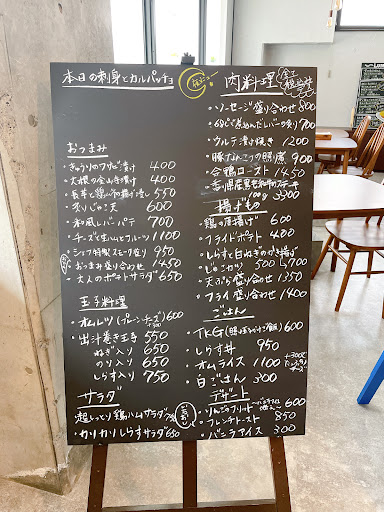 本日の刺身とカルパッチョ
おつまみ
・きゅうりのワサビ漬け 400
・大根の金山寺漬け 400
・長芋と鶏の柚子漬し 550
・炙りじゃこ天 600
・和風レバーパテ 700
・チーズと生ハムとフルーツ 1100
・シェフ特製スモーク盛り 950
・おつまみ盛り合わせ 1450
・大人のポテトサラダ 650
玉子料理
・オムレツ(プレーン・チーズ) 600
+300
・出汁巻き玉子 550
ねぎ入り 650
のり入り 650
しらす入り 750
サラダ
・超しっとり鶏ハムサラダ
・カリカリしらすサラダ 650
肉料理
・ソーセージ盛り合わせ 800
700
・ウルテ漬け焼き 1200
・豚なんこつの照り煮 900
・合鴨ロースト 1450
100g 3300
揚げもの
・鶏の唐揚げ 600
・フライドポテト 400
・しらすと白ねぎのかき揚げ 700
・じゃこカツ 500
・天ぷら盛り合わせ 1350
・フライ盛り合わせ 1400
ごはん
・TKG 600
・しらす丼 950
・オムライス 1100
・白ごはん 300
デザート
・りんごのフリット 600
・フレンチトースト 850
・バニラアイス 300